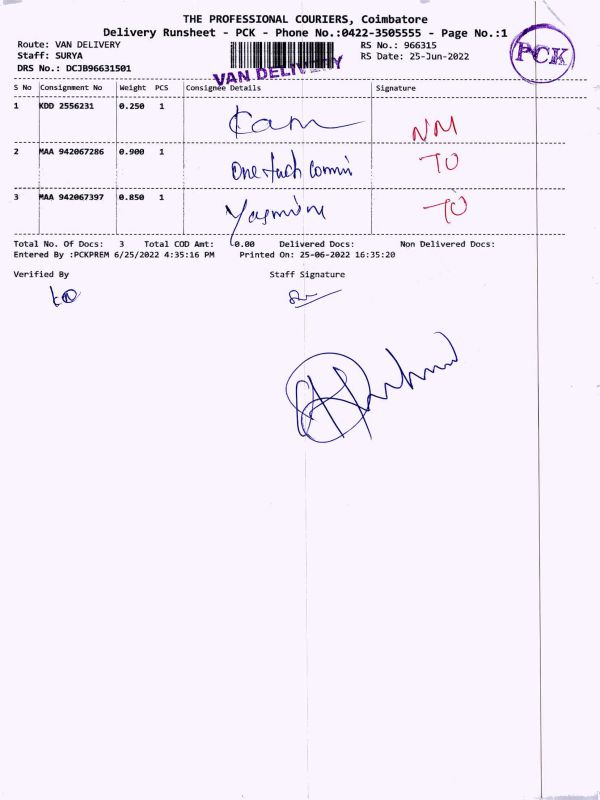 THE PROFESSIONAL COURIERS, Coimbatore
Delivery Runsheet - PCK - Phone No.:0422-3505555 - Page No.:1
Route: VAN DELIVERY RS No.: 966315
Staff: SURYA RS Date: 25-Jun-2022
DRS No.: DCJB96631501
VAN DELIVERY
PCK
S No Consignment No Weight PCS Consignee Details Signature
1 KDD 2556231 0.250 1 NM
2 MAA 942067286 0.900 1 TO
3 MAA 942067397 0.850 1 TO
Total No. Of Docs: 3 Total COD Amt: 0.00 Delivered Docs: Non Delivered Docs:
Entered By :PCKPREM 6/25/2022 4:35:16 PM Printed On: 25-06-2022 16:35:20
Verified By Staff Signature